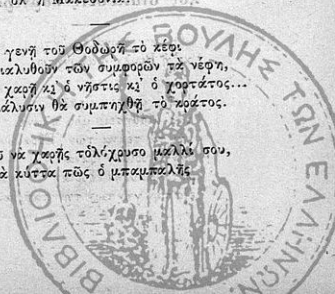 ὅλ' ἡ Μακεδονία.
γενῆ τοῦ Θοδωρῆ τὸ κέφι
διαλυθοῦν τῶν συμφορῶν τὰ νέφη,
χαρῇ κι' ὁ νῆστις κι' ὁ χορτάτος...
θὰ συμπηχθῇ τὸ κράτος.
νὰ χαρῇς τὸ μαλλί σου,
κύττα πῶς ὁ μπαμπαλῆς
ΒΙΒΛΙΟΘΗΚΗ ΤΗΣ ΒΟΥΛΗΣ ΤΩΝ ΕΛΛΗΝΩΝ